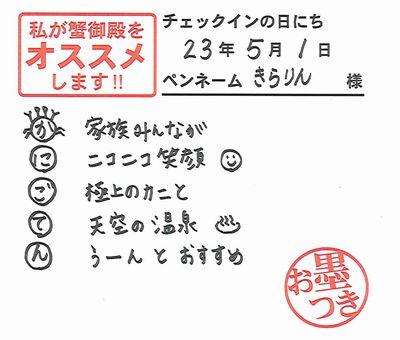 私が蟹御殿を
オススメ
します!!
チェックインの日にち
23年5月1日
ペンネーム きらりん 様
か 家族みんなが
に ニコニコ笑顔
ご 極上のカニと
て 天空の温泉
ん うーんとおすすめ
お墨つき